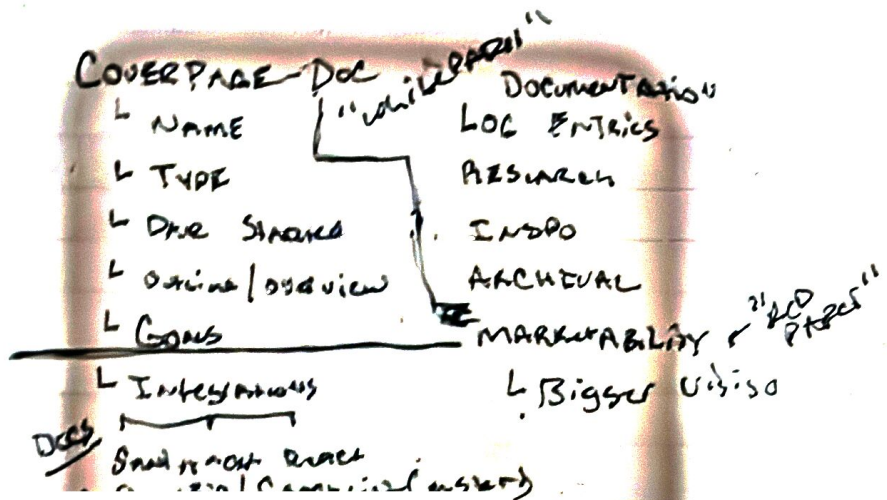 COVERPAGE DOC
"WhitePAPER"
└ NAME
└ TYPE
└ Date Started
└ Outline/overview
└ Goals
└ Integrations
Docs
DOCUMENTATION"
LOG ENTRIES
RESEARCH
INSPO
ARCHIVAL
MARKETABILITY
└ Bigger